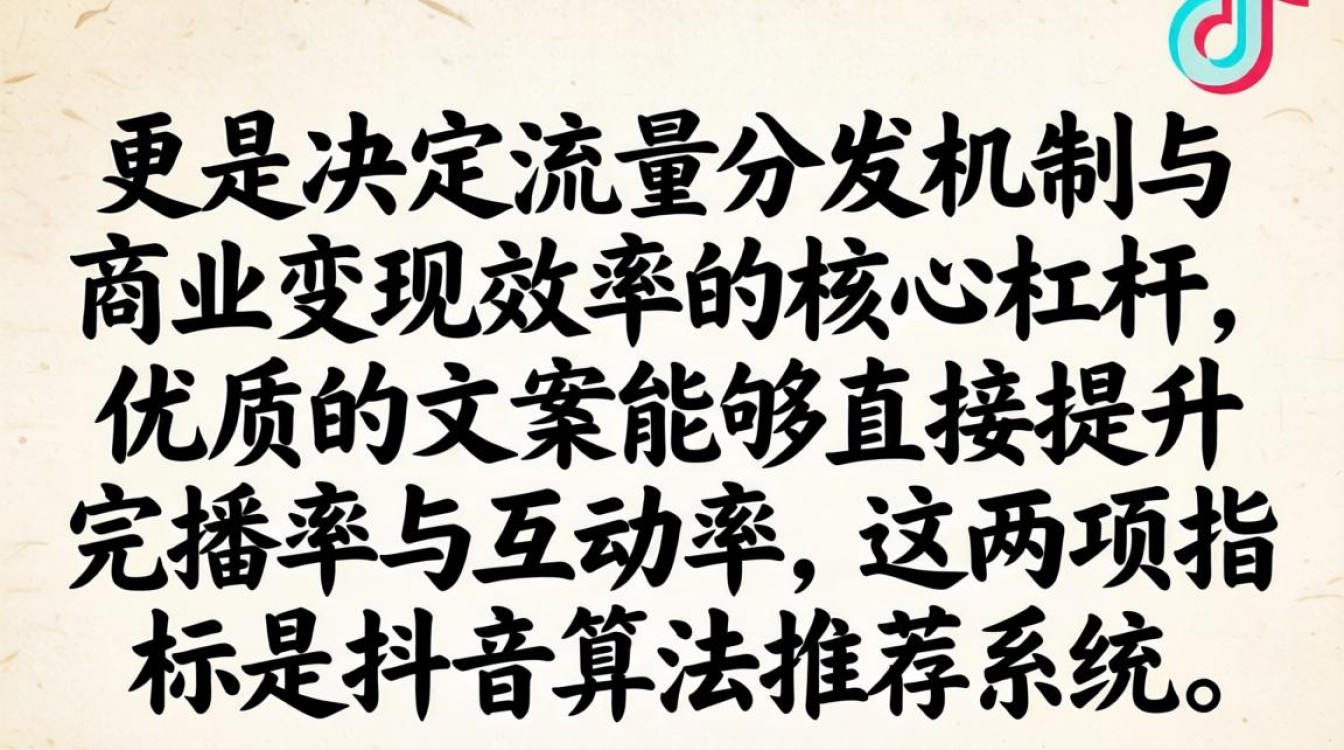 更是决定流量分发机制与
商业变现效率的核心杠杆，
优质的文案能够直接提升
完播率与互动率，这两项指
标是抖音算法推荐系统。